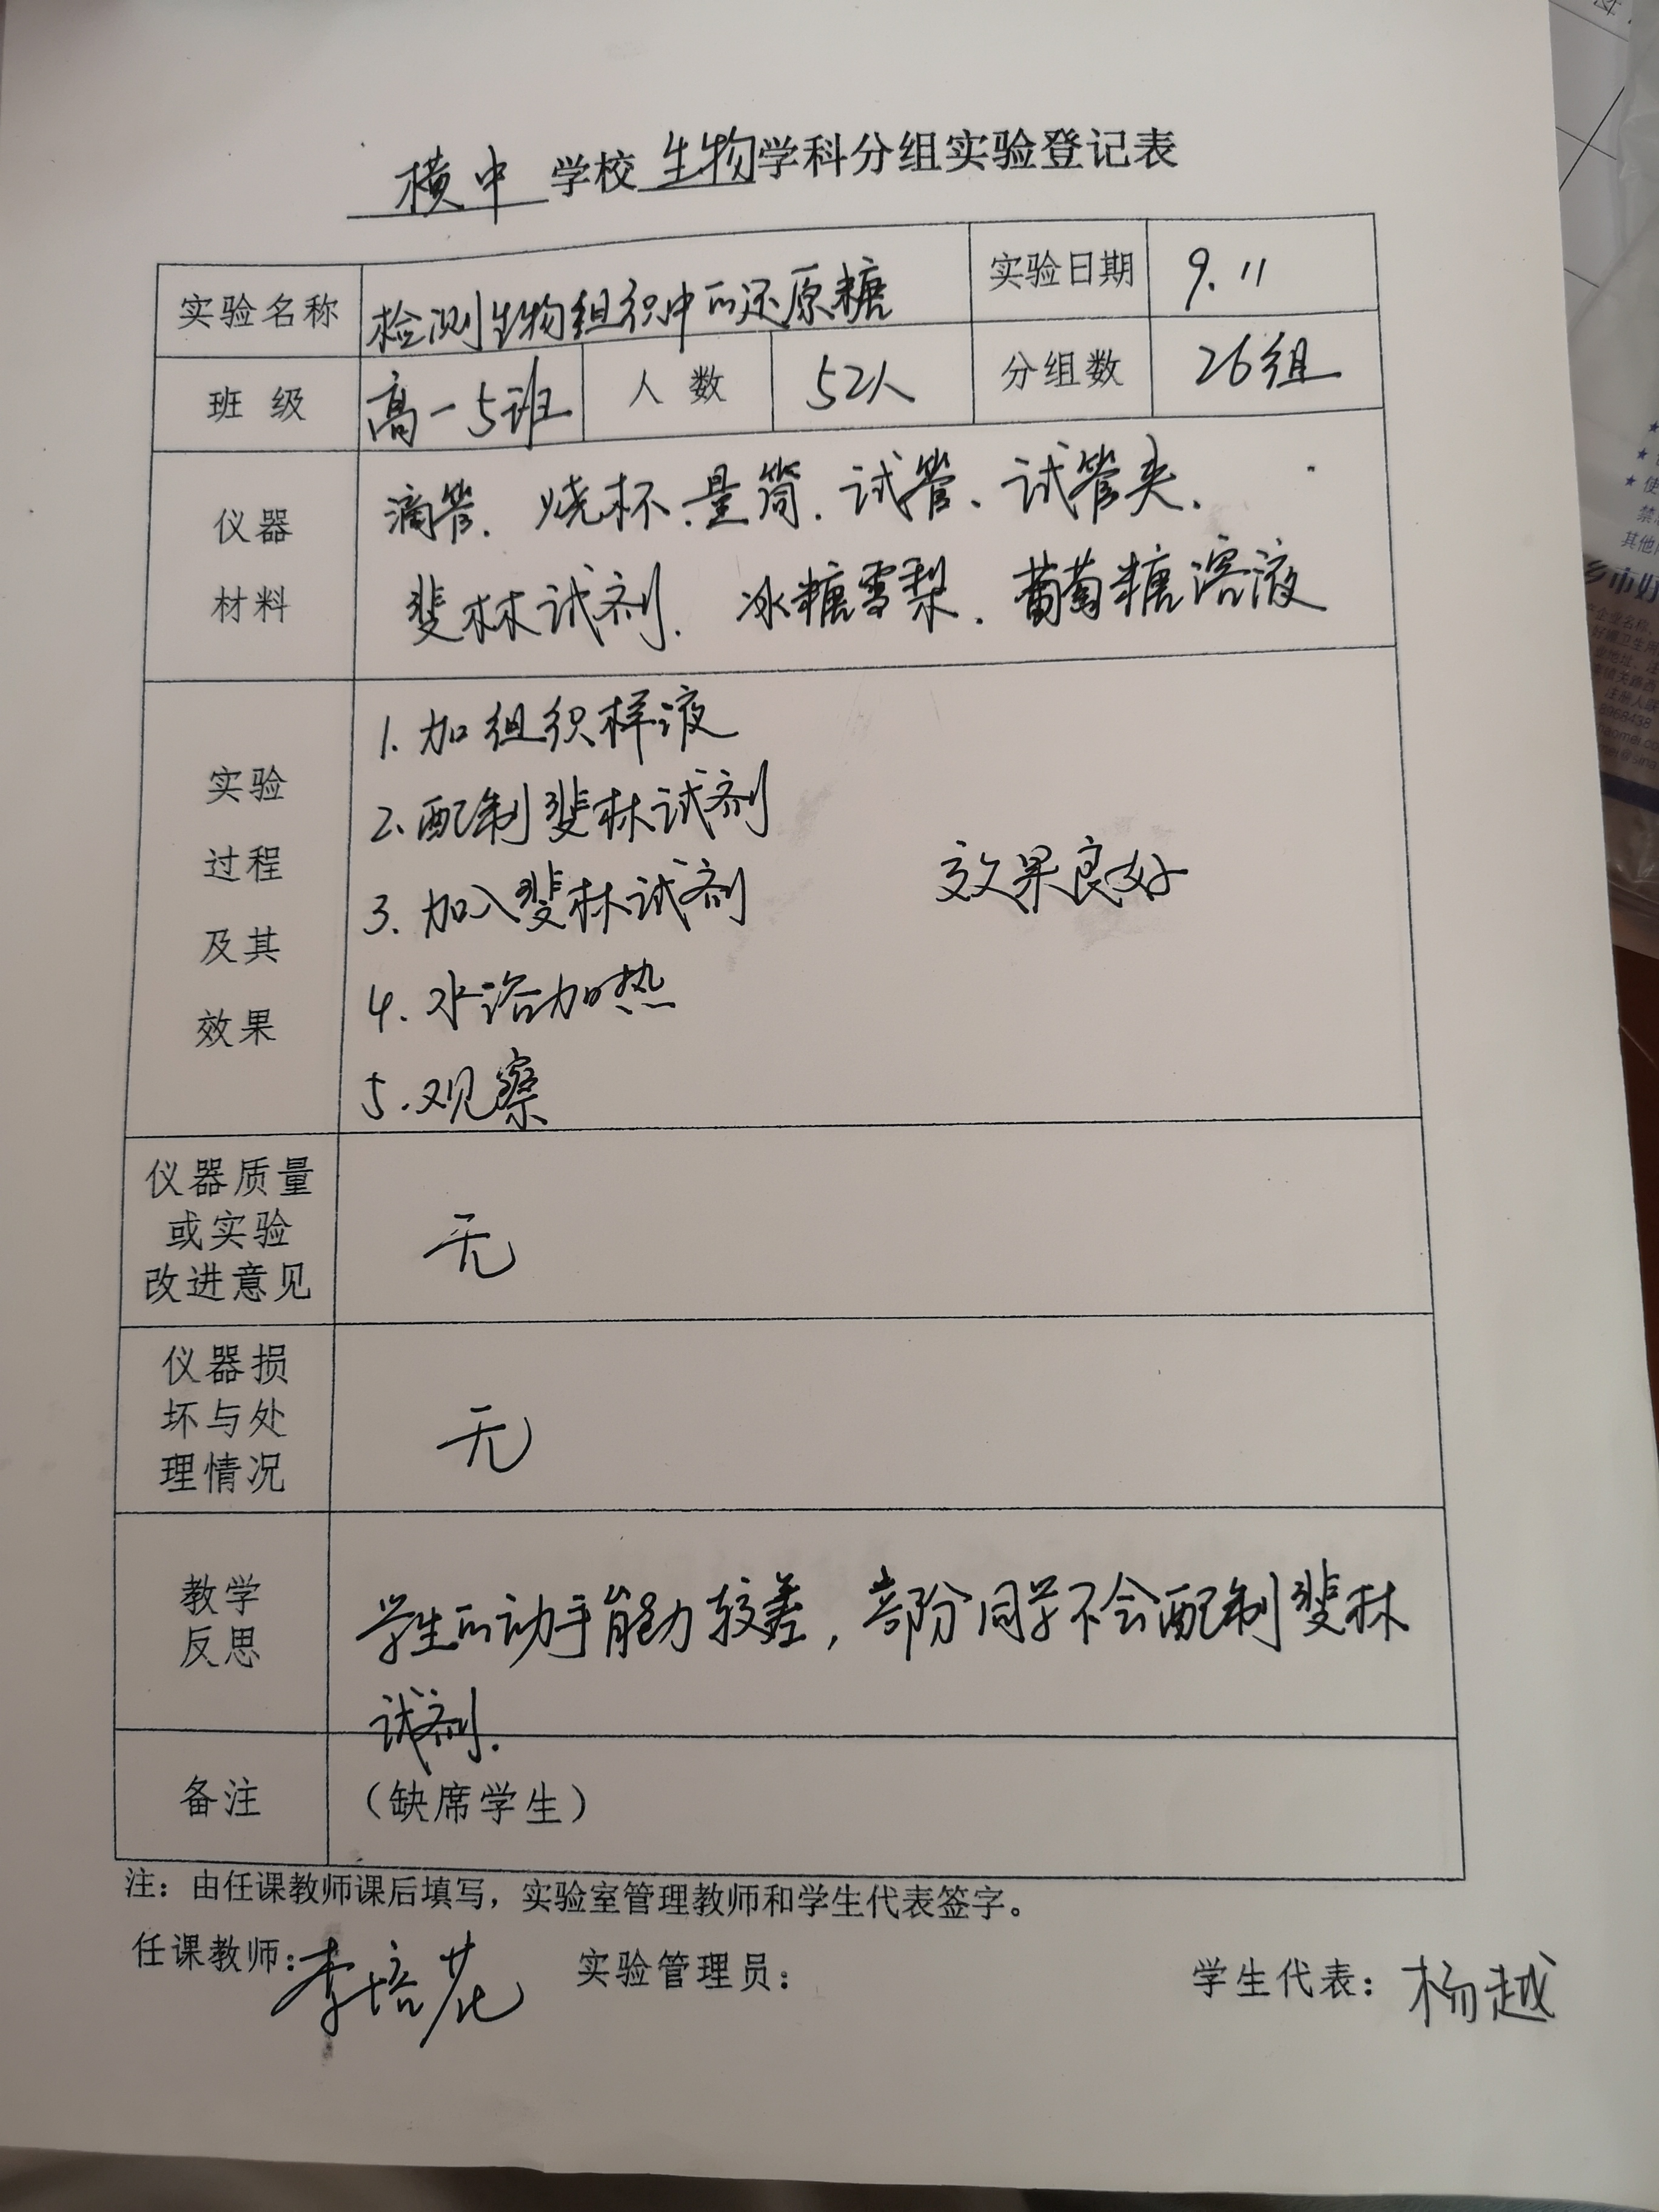 横中 学校 生物 学科分组实验登记表
实验名称 检测生物组织中的还原糖 实验日期 9.11
班 级 高一5班 人 数 52人 分组数 26组
仪器
材料
滴管、烧杯、量筒、试管、试管夹、
斐林试剂、冰糖雪梨、葡萄糖溶液
实验
过程
及其
效果
1.加组织样液
2.配制斐林试剂
3.加入斐林试剂
效果良好
4.水浴加热
5.观察
仪器质量
或实验
改进意见
无
仪器损
坏与处
理情况
无
教学
反思
学生的动手能力较差，部份同学不会配制斐林
试剂.
备注 （缺席学生）
注：由任课教师课后填写，实验室管理教师和学生代表签字。
任课教师：李培花 实验管理员： 学生代表：杨越